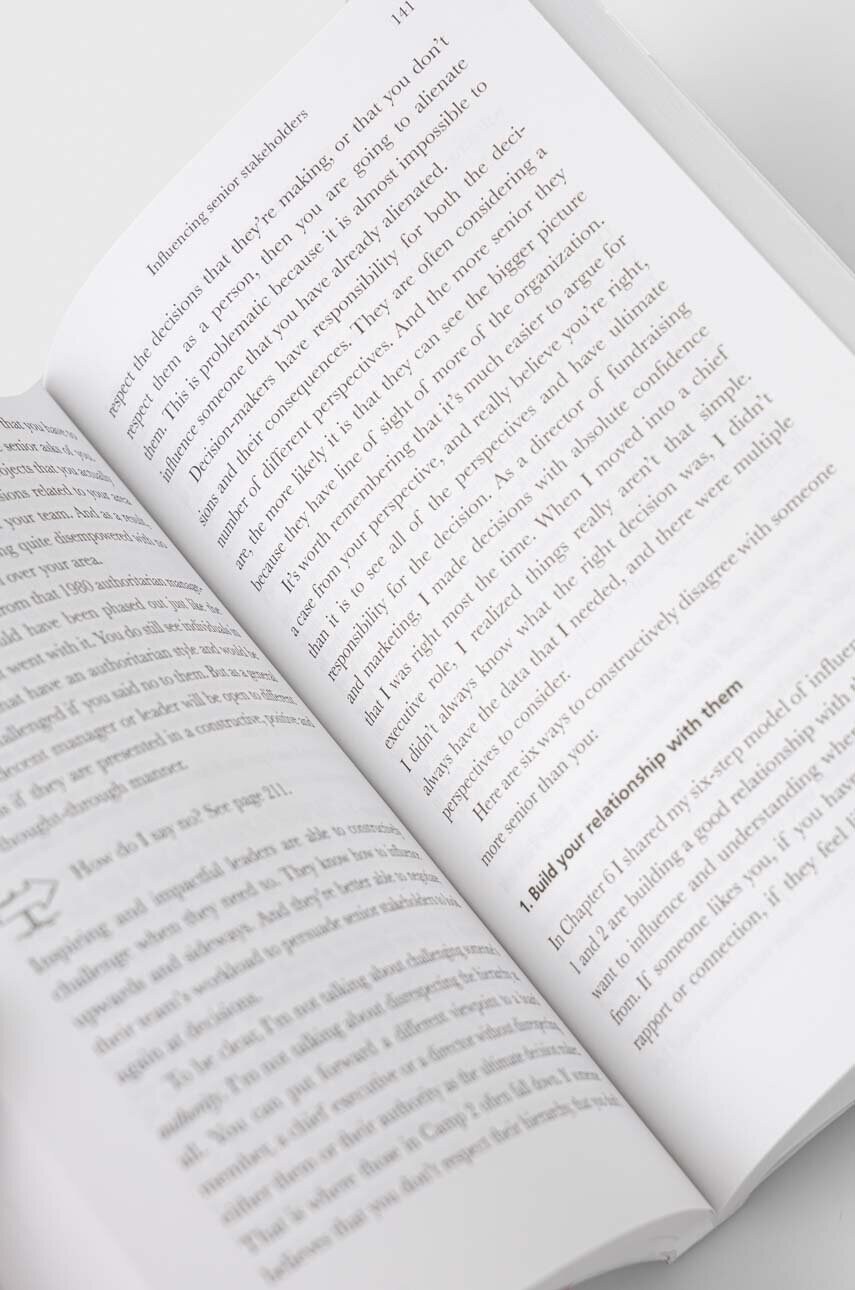 that you have to
senior asks of you.
ojects that you actually
sions related to your area
your team. And as a result,
ng quite disempowered with no
l over your area.
from that 1980 authoritarian manage-
uld have been phased out just like the
t went with it. You do still see individuals in
that have an authoritarian style and would be
hallenged if you said no to them. But as a general
decent manager or leader will be open to different
s if they are presented in a constructive, positive and
thought-through manner.
How do I say no? See page 211.
Inspiring and impactful leaders are able to constructively
challenge when they need to. They know how to influence
upwards and sideways. And they're better able to negotiate
their team's workload to persuade senior stakeholders to look
again at decisions.
To be clear, I'm not talking about challenging someone's
authority. I'm not talking about disrespecting the hierarchy at
all. You can put forward a different viewpoint to a board
member, a chief executive or a director without disrespecting
either them or their authority as the ultimate decision maker.
That is where those in Camp 2 often fall down. If someone
believes that you don't respect their hierarchy, that you don't
Influencing senior stakeholders
141
respect the decisions that they're making, or that you don't
respect them as a person, then you are going to alienate
them. This is problematic because it is almost impossible to
influence someone that you have already alienated.
Decision-makers have responsibility for both the deci-
sions and their consequences. They are often considering a
number of different perspectives. And the more senior they
are, the more likely it is that they can see the bigger picture
because they have line of sight of more of the organization.
It's worth remembering that it's much easier to argue for
a case from your perspective, and really believe you're right,
than it is to see all of the perspectives and have ultimate
responsibility for the decision. As a director of fundraising
and marketing, I made decisions with absolute confidence
that I was right most the time. When I moved into a chief
executive role, I realized things really aren't that simple.
I didn't always know what the right decision was, I didn't
always have the data that I needed, and there were multiple
perspectives to consider.
Here are six ways to constructively disagree with someone
more senior than you:
1. Build your relationship with them
In Chapter 6 I shared my six-step model of influen
1 and 2 are building a good relationship with th
want to influence and understanding wher
from. If someone likes you, if you have
rapport or connection, if they feel li